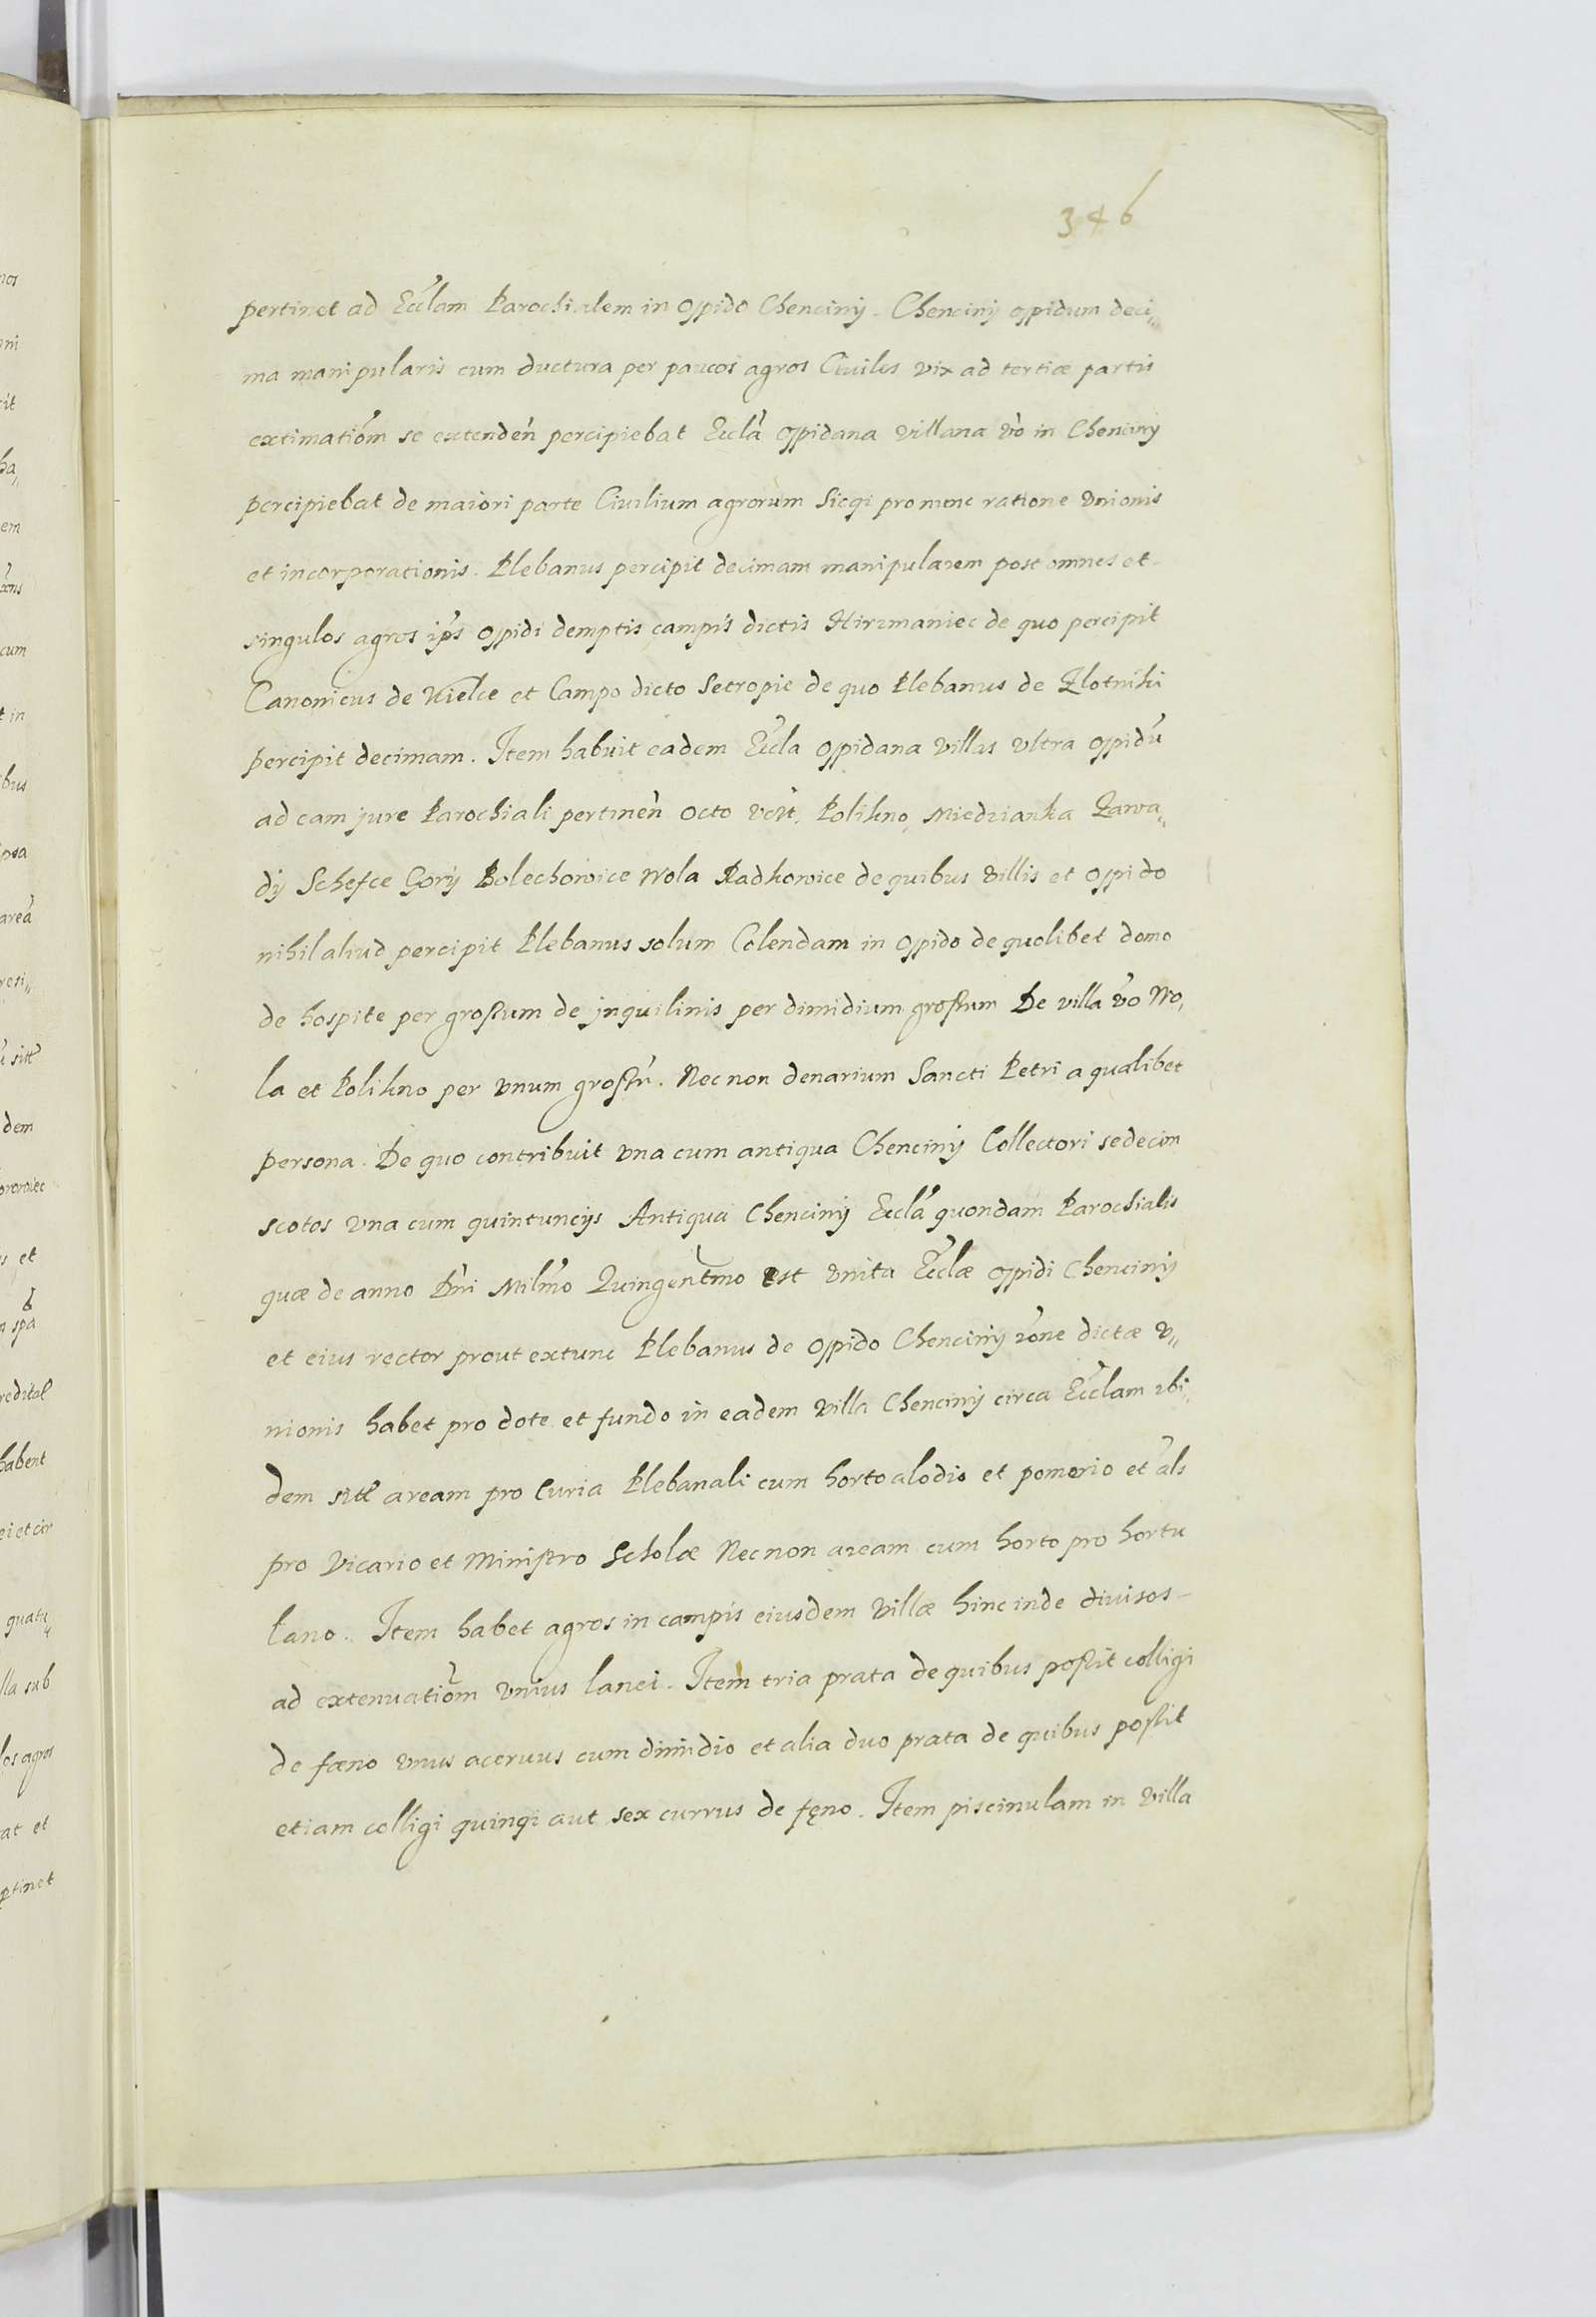 346
pertinet ad Eccl̃am Parochialem in oppido Chenciny. Chenciny oppidum deci„
ma manipularis cum ductura per paucos agros Civiles vix ad tertiæ partis
extimatiõm se extendeñ percipiebat Eccla᷉ oppidana villana ṽo in Chenciny
percipiebat de maiori parte Civilium agrorum Sicqi pro nunc ratione vnionis
et incorporationis. Plebanus percipit decimam manipularem post omnes et
singulos agros ip̃s oppidi demptis campis dictis Hirzmaniec de quo percipit
Canonicus de Kielce et Campo dicto Setropie de quo Plebanus de Zlotniki
percipit decimam. Item habuit eadem Eccl̃a oppidana villas vltra oppidũ
ad eam jure Parochiali pertineñ octo vcꝫt. Polikno, Miedzianka Zawa„
dÿ Schefce Gorÿ Bolechowice Wola Radkowice de quibus villis et oppido
nihil aliud percipit Plebanus solum Colendam in oppido de quolibet domo
de hospite per grossum de jnquilinis per dimidium grossum De villa ṽo Wo,
la et Polikno per vnum grossũ. Nec non denarium Sancti Petri a qualibet
persona. De quo contribuit vna cum antiqua Chencinÿ Collectori sedecim
scotos vna cum quintuncÿs Antiqua Chencinÿ Eccl̃a quondam Parochialis
quæ de anno Dñi Milm̃o Quingentm̃o est vnita Eccl̃æ oppidi Chencinÿ
et eius rector prout extunc Plebanus de oppido Chencinÿ rõne dictæ v„
nionis habet pro dote et fundo in eadem villa Chencinÿ circa Eccl̃am ibi,
dem sitt̃ aream pro Curia Plebanali cum horto alodio et pomerio et ãls
pro Vicario et Ministro Scholæ Nec non aream cum horto pro hortu
lano. Item habet agros in campis eiusdem villæ hinc inde divisos
ad extenuatiõm vnius lanei. Item tria prata de quibus possit colligi
de fæno vnus aceruus cum dimidio et alia duo prata de quibus possit
etiam colligi quinqi aut sex currus de fęno. Item piscinulam in villa